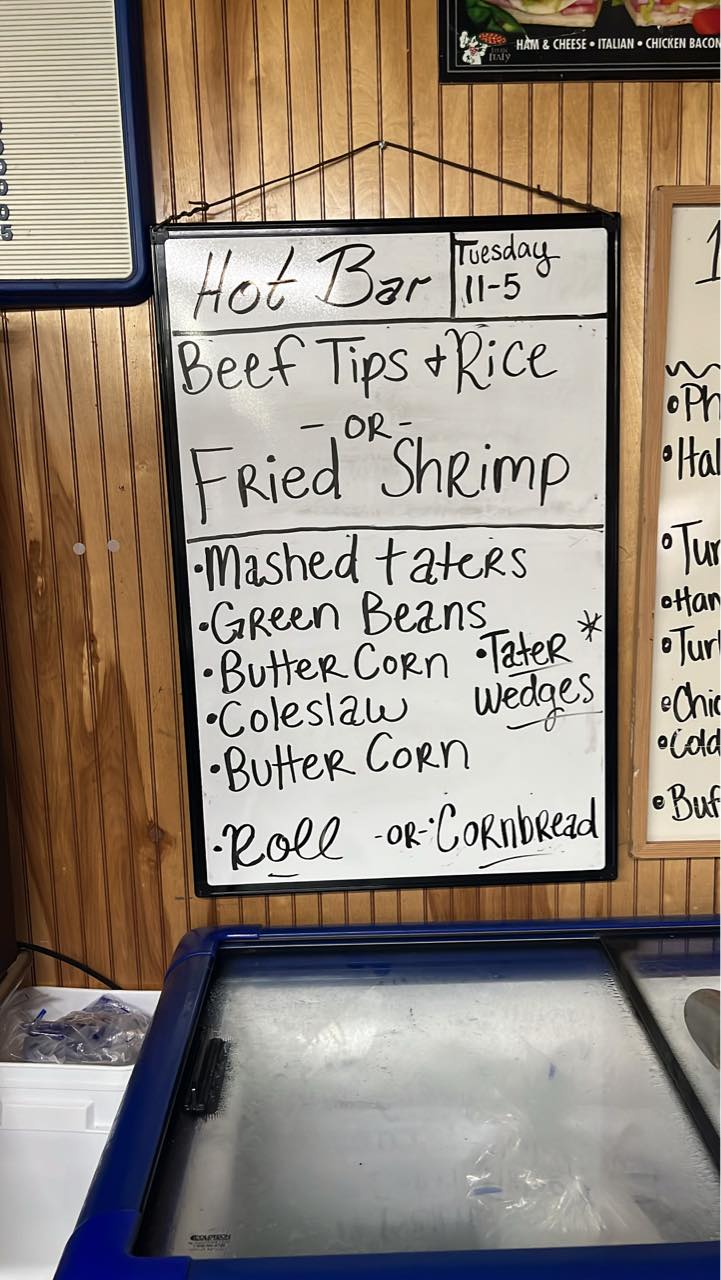 HAM & CHEESE • ITALIAN • CHICKEN BACON
Italy
Hot Bar
Tuesday
11-5
Beef Tips + Rice
- OR -
Fried Shrimp
•Mashed taters
•Green Beans
•Butter Corn
•Tater *
wedges
•Coleslaw
•Butter Corn
•Roll -OR- •Cornbread
•Ph
•Hal
•Tur
•Ham
•Turk
•Chic
•Cold
•Buf
5